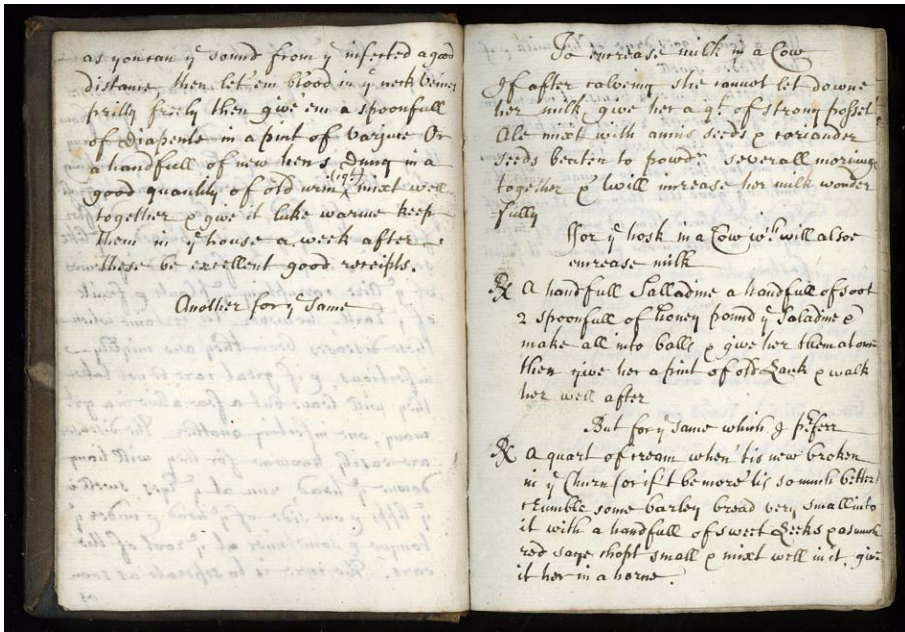 as you can yͤ sound from yͤ infected a good
distance, then let 'em blood in yͤ neck veines
pritty freely then give em a spoonfull
of Diapente in a pint of Varguce Or
a handfull of new hens Dung in a
good quantity of old urin (1qt) mixt well
together & give it luke warme keep
them in yͤ house a week after
these be excellent good receipts.
Another for yͤ same
To encrease milk in a Cow
If after calveing she cannot let downe
her milk give her a qt. of strong posset
Ale mixt with annis seeds & coriander
seeds beaten to powdr. severall mornings
together & will increase her milk wonder
fully
For yͤ hosk in a Cow wch will alsoe
encrease milk
℞ A handfull Salladine a handfull of soot
2 spoonfull of honey pound yͤ Saladine &
make all into balls & give her them at once
then give her a pint of old & walk
her well after
But for yͤ same which I p̄ferr
℞ A quart of cream when 'tis new broken
in yͤ Churn (or if 't be more 'tis so much better)
crumble some barley bread very small into
it with a handfull of sweet Leeks & as much
red sage chopt small & mixt well in it, give
it her in a horne.